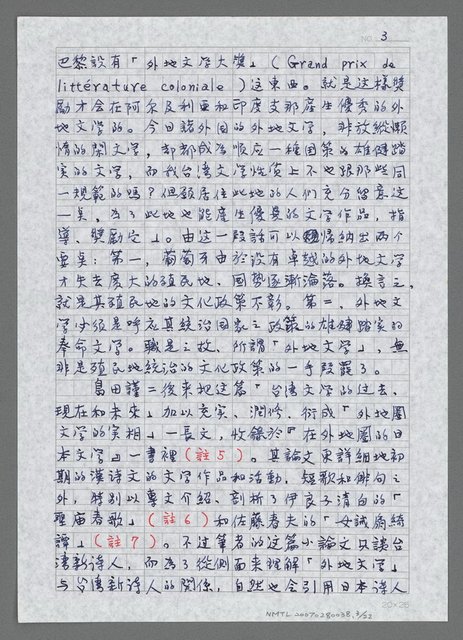 NO. 3
巴黎設有「外地文学大獎」(Grand prix de
littérature coloniale)这東西。就是这樣獎
勵才会在阿尔及利亜和印度支那產生優秀的外
地文学的。今日諸外国的外地文学,非放縱頽
惰的閑文学,却都成為順应一種国策的雄健踏
実的文学,而我台湾文学性質上不也跟那些同
一規範的嗎?但願居住此地的人们充分留意这
一奌,為了此地也能產生優異的文学作品,指
導、獎勵它」。由这一段話可以歸納出两个
要奌:第一,葡萄牙由於没有卓越的外地文学
才失去廣大的殖民地,国勢逐漸淪落。換言之,
就是其殖民地的文化政策不彰。第二,外地文
学必须是呼应其統治国家之政策的雄健踏実的
奉命文学。職是之故,所謂「外地文学」,無
非是殖民地統治的文化政策的一手段罷了。
島田謹二後来把这篇「台湾文学的过去、
現在和未来」加以充実、潤修,衍成「外地圏
文学的実相」一長文,收錄於『在外地圏的日
本文学』一書裡(註5)。其論文裏詳細地初
期的漢詩文的文学作品和活動,短歌和俳句之
外,特别以專文介绍、剖析了伊良子清白的「
聖庙春歌」(註6)和佐藤春夫的「女誡扇綺
譚」(註7)。不过筆者的这篇小論文只談台
湾新诗人,而為了從側面来理解「外地文学」
与台湾新诗人的関係,自然也会引用日本诗人
20×25
NMTL 20070280038, 3/52